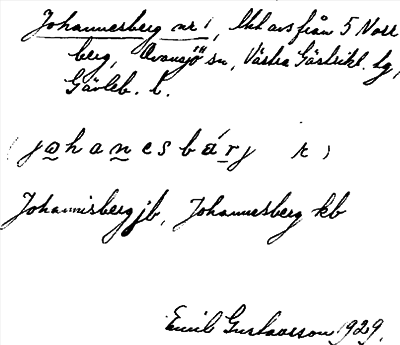 Johannesberg nr 1, Utt avs från 5 Norr
berg, Ovansjö sn, Västra Gästrikl. tg,
Gävleb. l.
(johanesbárj r)
Johannisberg jb, Johannesberg kb
Emil Gustavsson 1929.